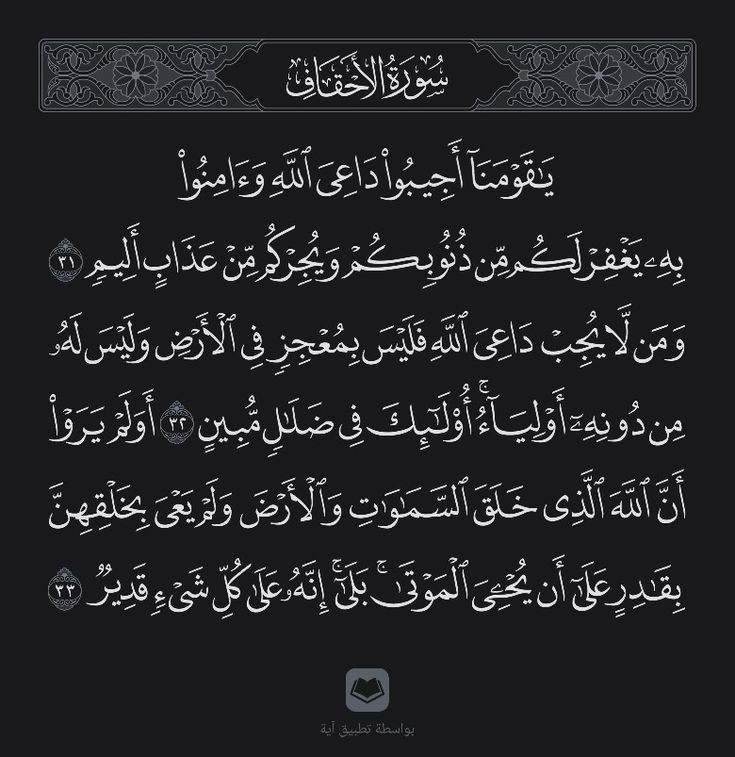 سُورَةُ الأَحْقَافِ
يَـٰقَوْمَنَآ أَجِيبُوا۟ دَاعِىَ ٱللَّهِ وَءَامِنُوا۟
بِهِۦ يَغْفِرْ لَكُم مِّن ذُنُوبِكُمْ وَيُجِرْكُم مِّنْ عَذَابٍ أَلِيمٍ ٣١
وَمَن لَّا يُجِبْ دَاعِىَ ٱللَّهِ فَلَيْسَ بِمُعْجِزٍ فِى ٱلْأَرْضِ وَلَيْسَ لَهُۥ
مِن دُونِهِۦٓ أَوْلِيَآءُ ۚ أُو۟لَـٰٓئِكَ فِى ضَلَـٰلٍ مُّبِينٍ ٣٢ أَوَلَمْ يَرَوْا۟
أَنَّ ٱللَّهَ ٱلَّذِى خَلَقَ ٱلسَّمَـٰوَٰتِ وَٱلْأَرْضَ وَلَمْ يَعْىَ بِخَلْقِهِنَّ
بِقَـٰدِرٍ عَلَىٰٓ أَن يُحْـِۧىَ ٱلْمَوْتَىٰ ۚ بَلَىٰٓ ۚ إِنَّهُۥ عَلَىٰ كُلِّ شَىْءٍ قَدِيرٌ ٣٣
بواسطة تطبيق آية